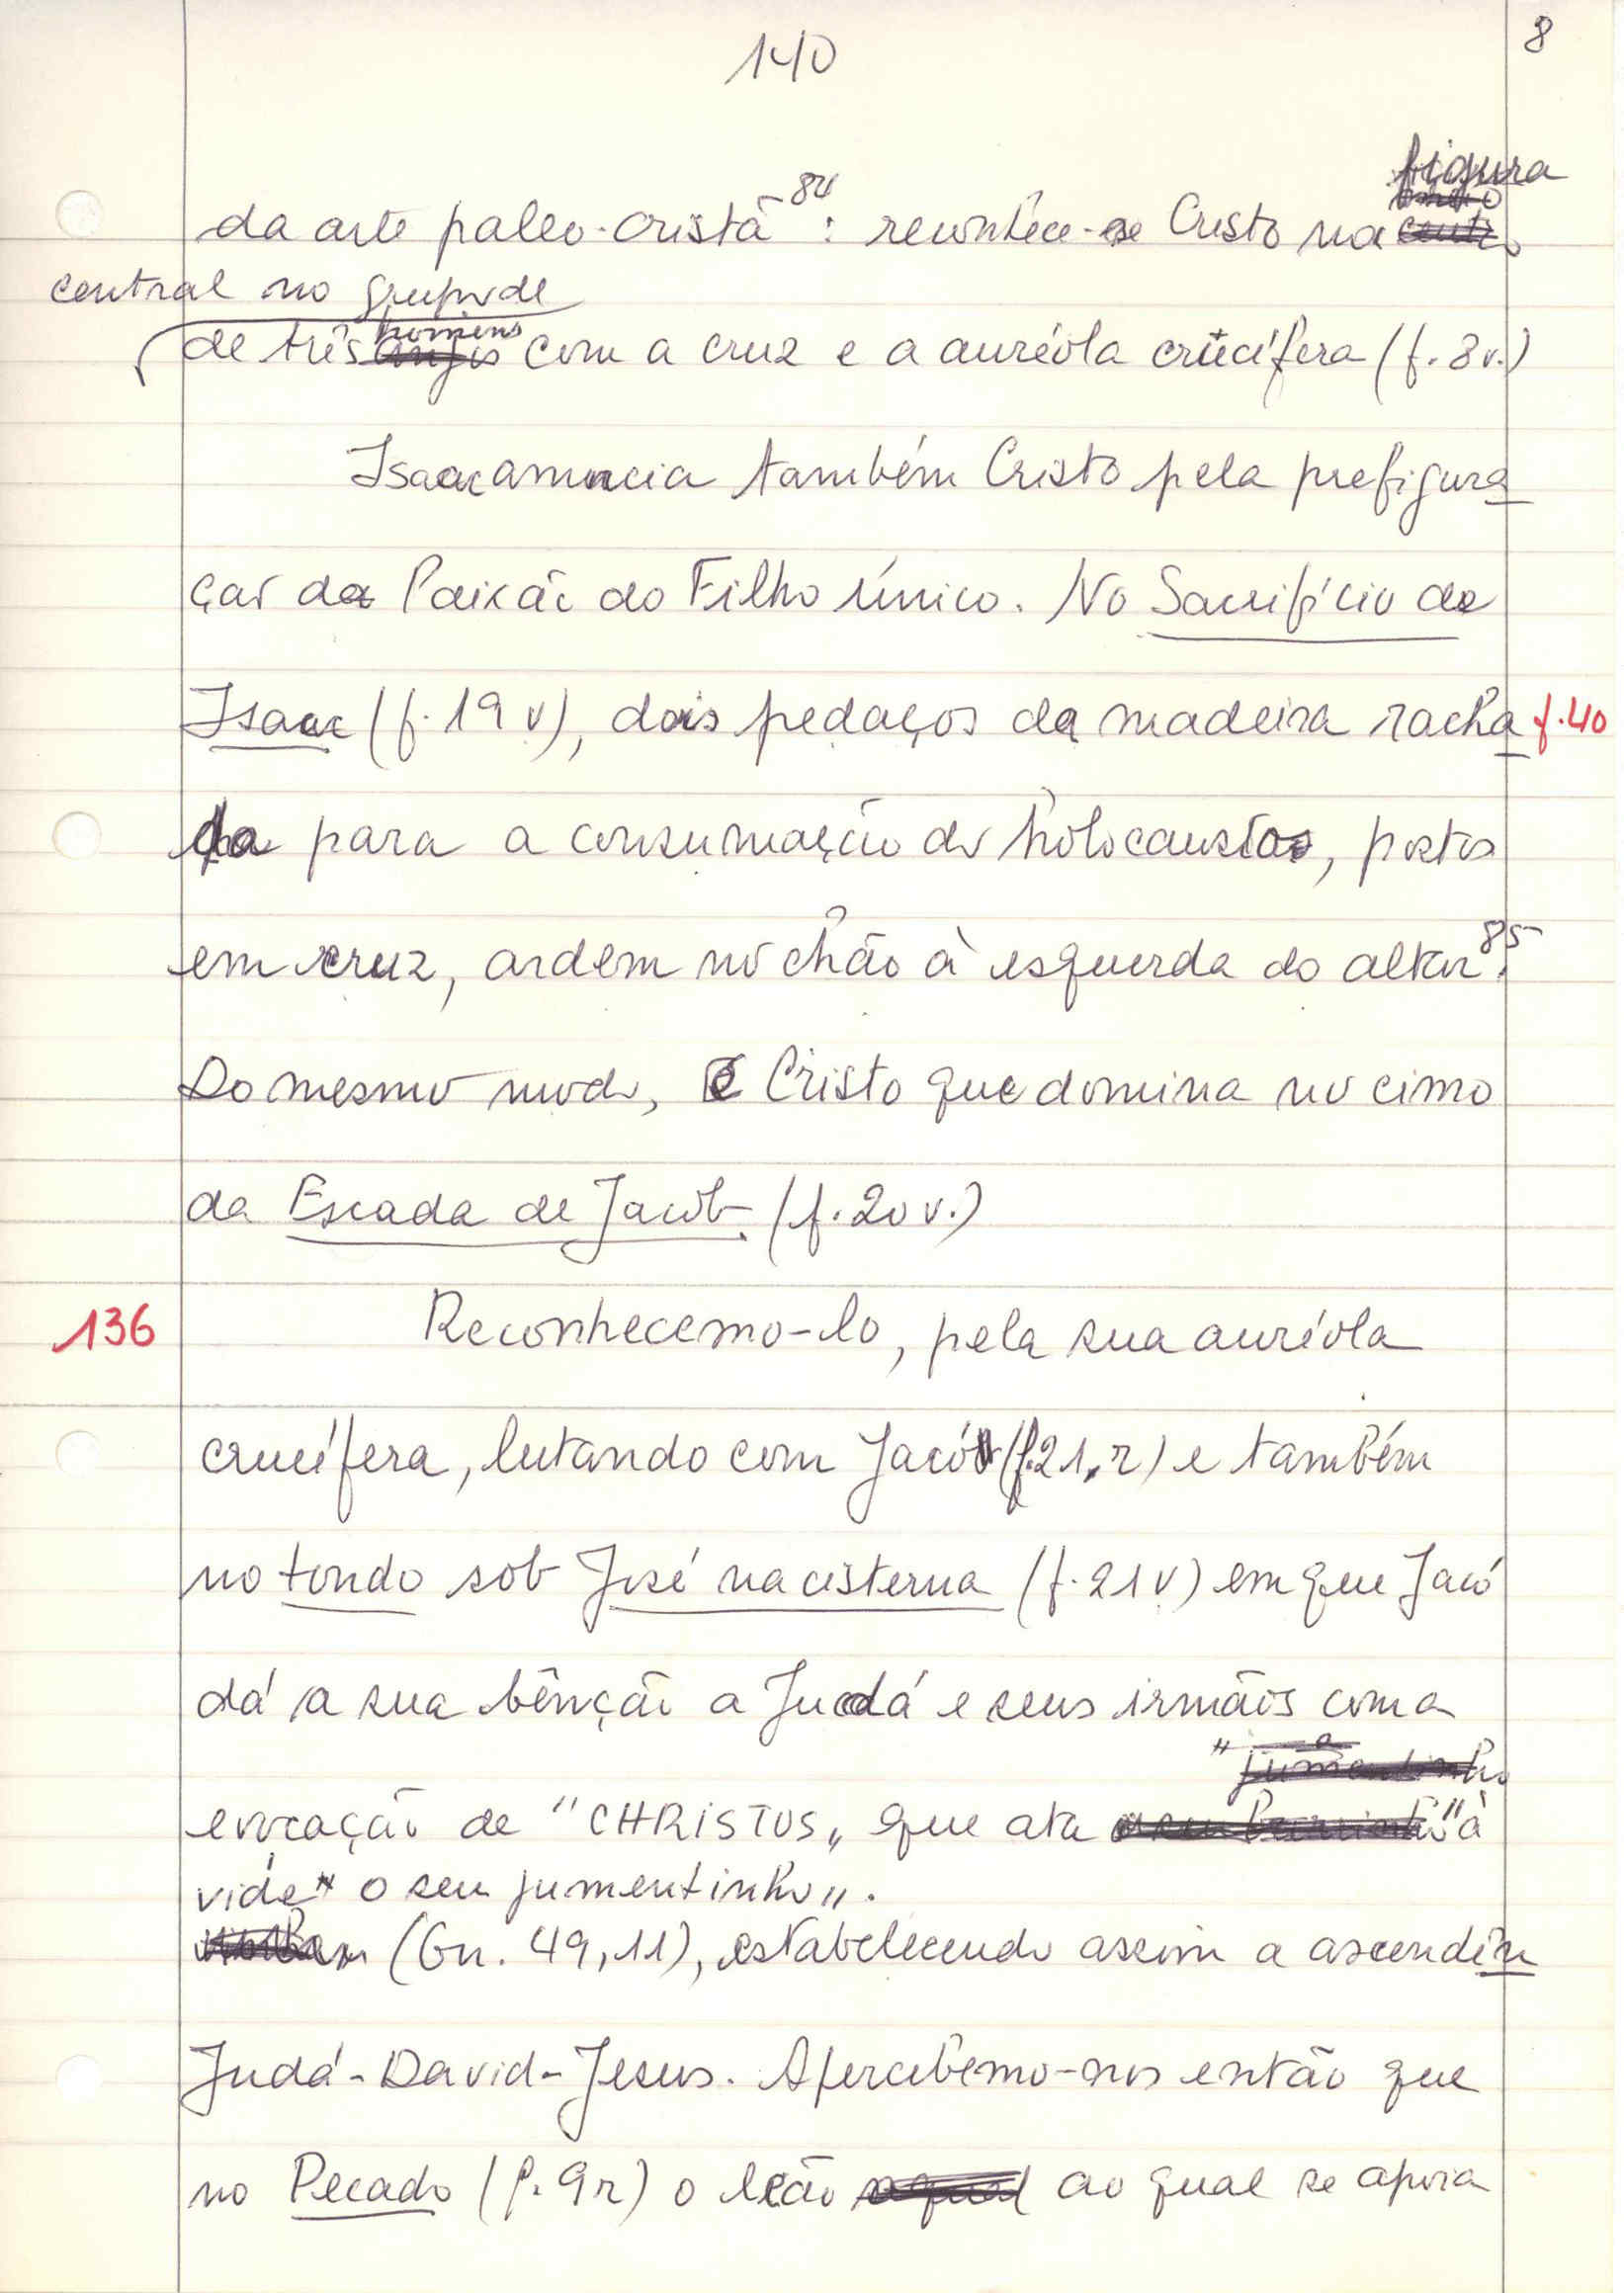 140
8
figura
da arte paleo-cristã 84 : reconhece-se Cristo na
central no grupo de
homens
de três anjos com a cruz e a auréola crucífera (f. 8v.)
Isaac anuncia também Cristo pela prefigura
ção da Paixão do Filho único. No Sacrifício de
Isaac (f. 19 v), dois pedaços da madeira racha f. 40
da para a consumação do holocausto, postos
em cruz, ardem no chão à esquerda do altar 85.
Do mesmo modo, é Cristo que domina no cimo
da Escada de Jacob (f. 20 v.)
136 Reconhecemo-lo, pela sua auréola
crucífera, lutando com Jacó (f. 21, r) e também
no tondo sob José na cisterna (f. 21 v) em que Jacó
dá a sua bênção a Judá e seus irmãos com a
" jumentinho
evocação de "CHRISTUS" que ata " à
vide" o seu jumentinho".
(Gn. 49, 11), estabelecendo assim a ascendên
Judá - David - Jesus. Apercebemo-nos então que
no Pecado (f. 9r) o leão ao qual se apoia